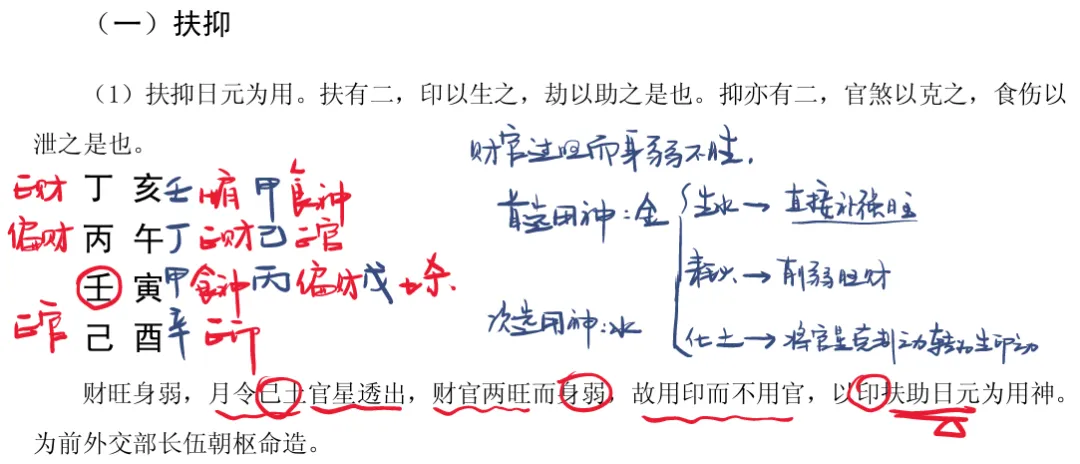 （一）扶抑
（1）扶抑日元为用。扶有二，印以生之，劫以助之是也。抑亦有二，官煞以克之，食伤以
泄之是也。
财官过旺而身弱不胜.
正财 丁 亥 壬 比肩 甲 食神
偏财 丙 午 丁 正财 己 正官
壬 寅 甲 食神 丙 偏财 戊 七杀
正官 己 酉 辛 正印
首选用神：金
生水→直接补强日主
耗火→削弱旺财
化土→将官星克制之力转为生印之力
次选用神：水
财旺身弱，月令己土官星透出，财官两旺而身弱，故用印而不用官，以印扶助日元为用神。
为前外交部长伍朝枢命造。